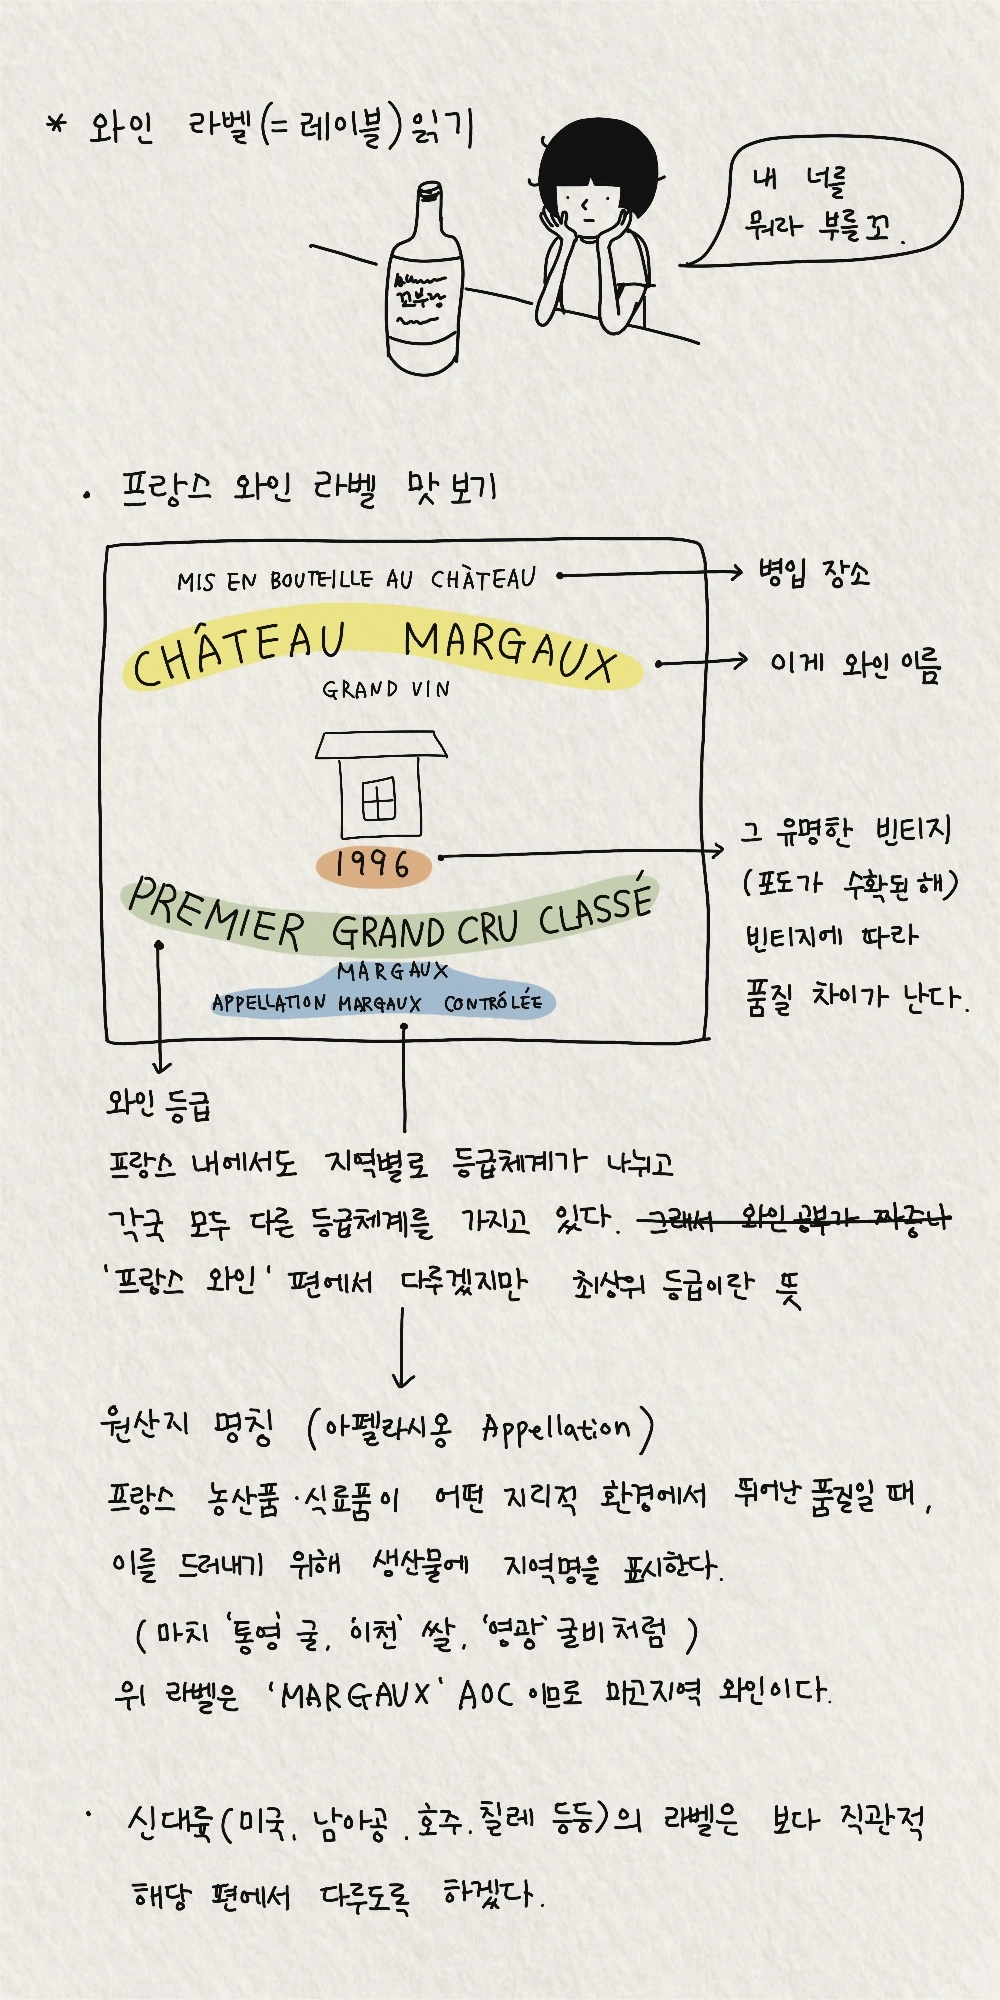 * 와인 라벨(=레이블) 읽기
내 너를
뭐라 부를꼬.
꼬부랑
· 프랑스 와인 라벨 맛보기
MIS EN BOUTEILLE AU CHÀTEAU
병입 장소
CHÂTEAU MARGAUX
이게 와인 이름
GRAND VIN
1996
그 유명한 빈티지
(포도가 수확된 해)
빈티지에 따라
품질 차이가 난다.
PREMIER GRAND CRU CLASSÉ
MARGAUX
APPELLATION MARGAUX CONTRÓLÉE
와인 등급
프랑스 내에서도 지역별로 등급체계가 나뉘고
각국 모두 다른 등급체계를 가지고 있다. 그래서 와인공부가 짜증나
'프랑스 와인' 편에서 다루겠지만 최상위 등급이란 뜻
원산지 명칭 (아펠라시옹 Appellation)
프랑스 농산품·식료품이 어떤 지리적 환경에서 뛰어난 품질일 때,
이를 드러내기 위해 생산물에 지역명을 표시한다.
(마치 '통영' 굴, '이천' 쌀, '영광' 굴비처럼)
위 라벨은 'MARGAUX' AOC 이므로 마고지역 와인이다.
· 신대륙(미국, 남아공, 호주, 칠레 등등)의 라벨은 보다 직관적
해당 편에서 다루도록 하겠다.